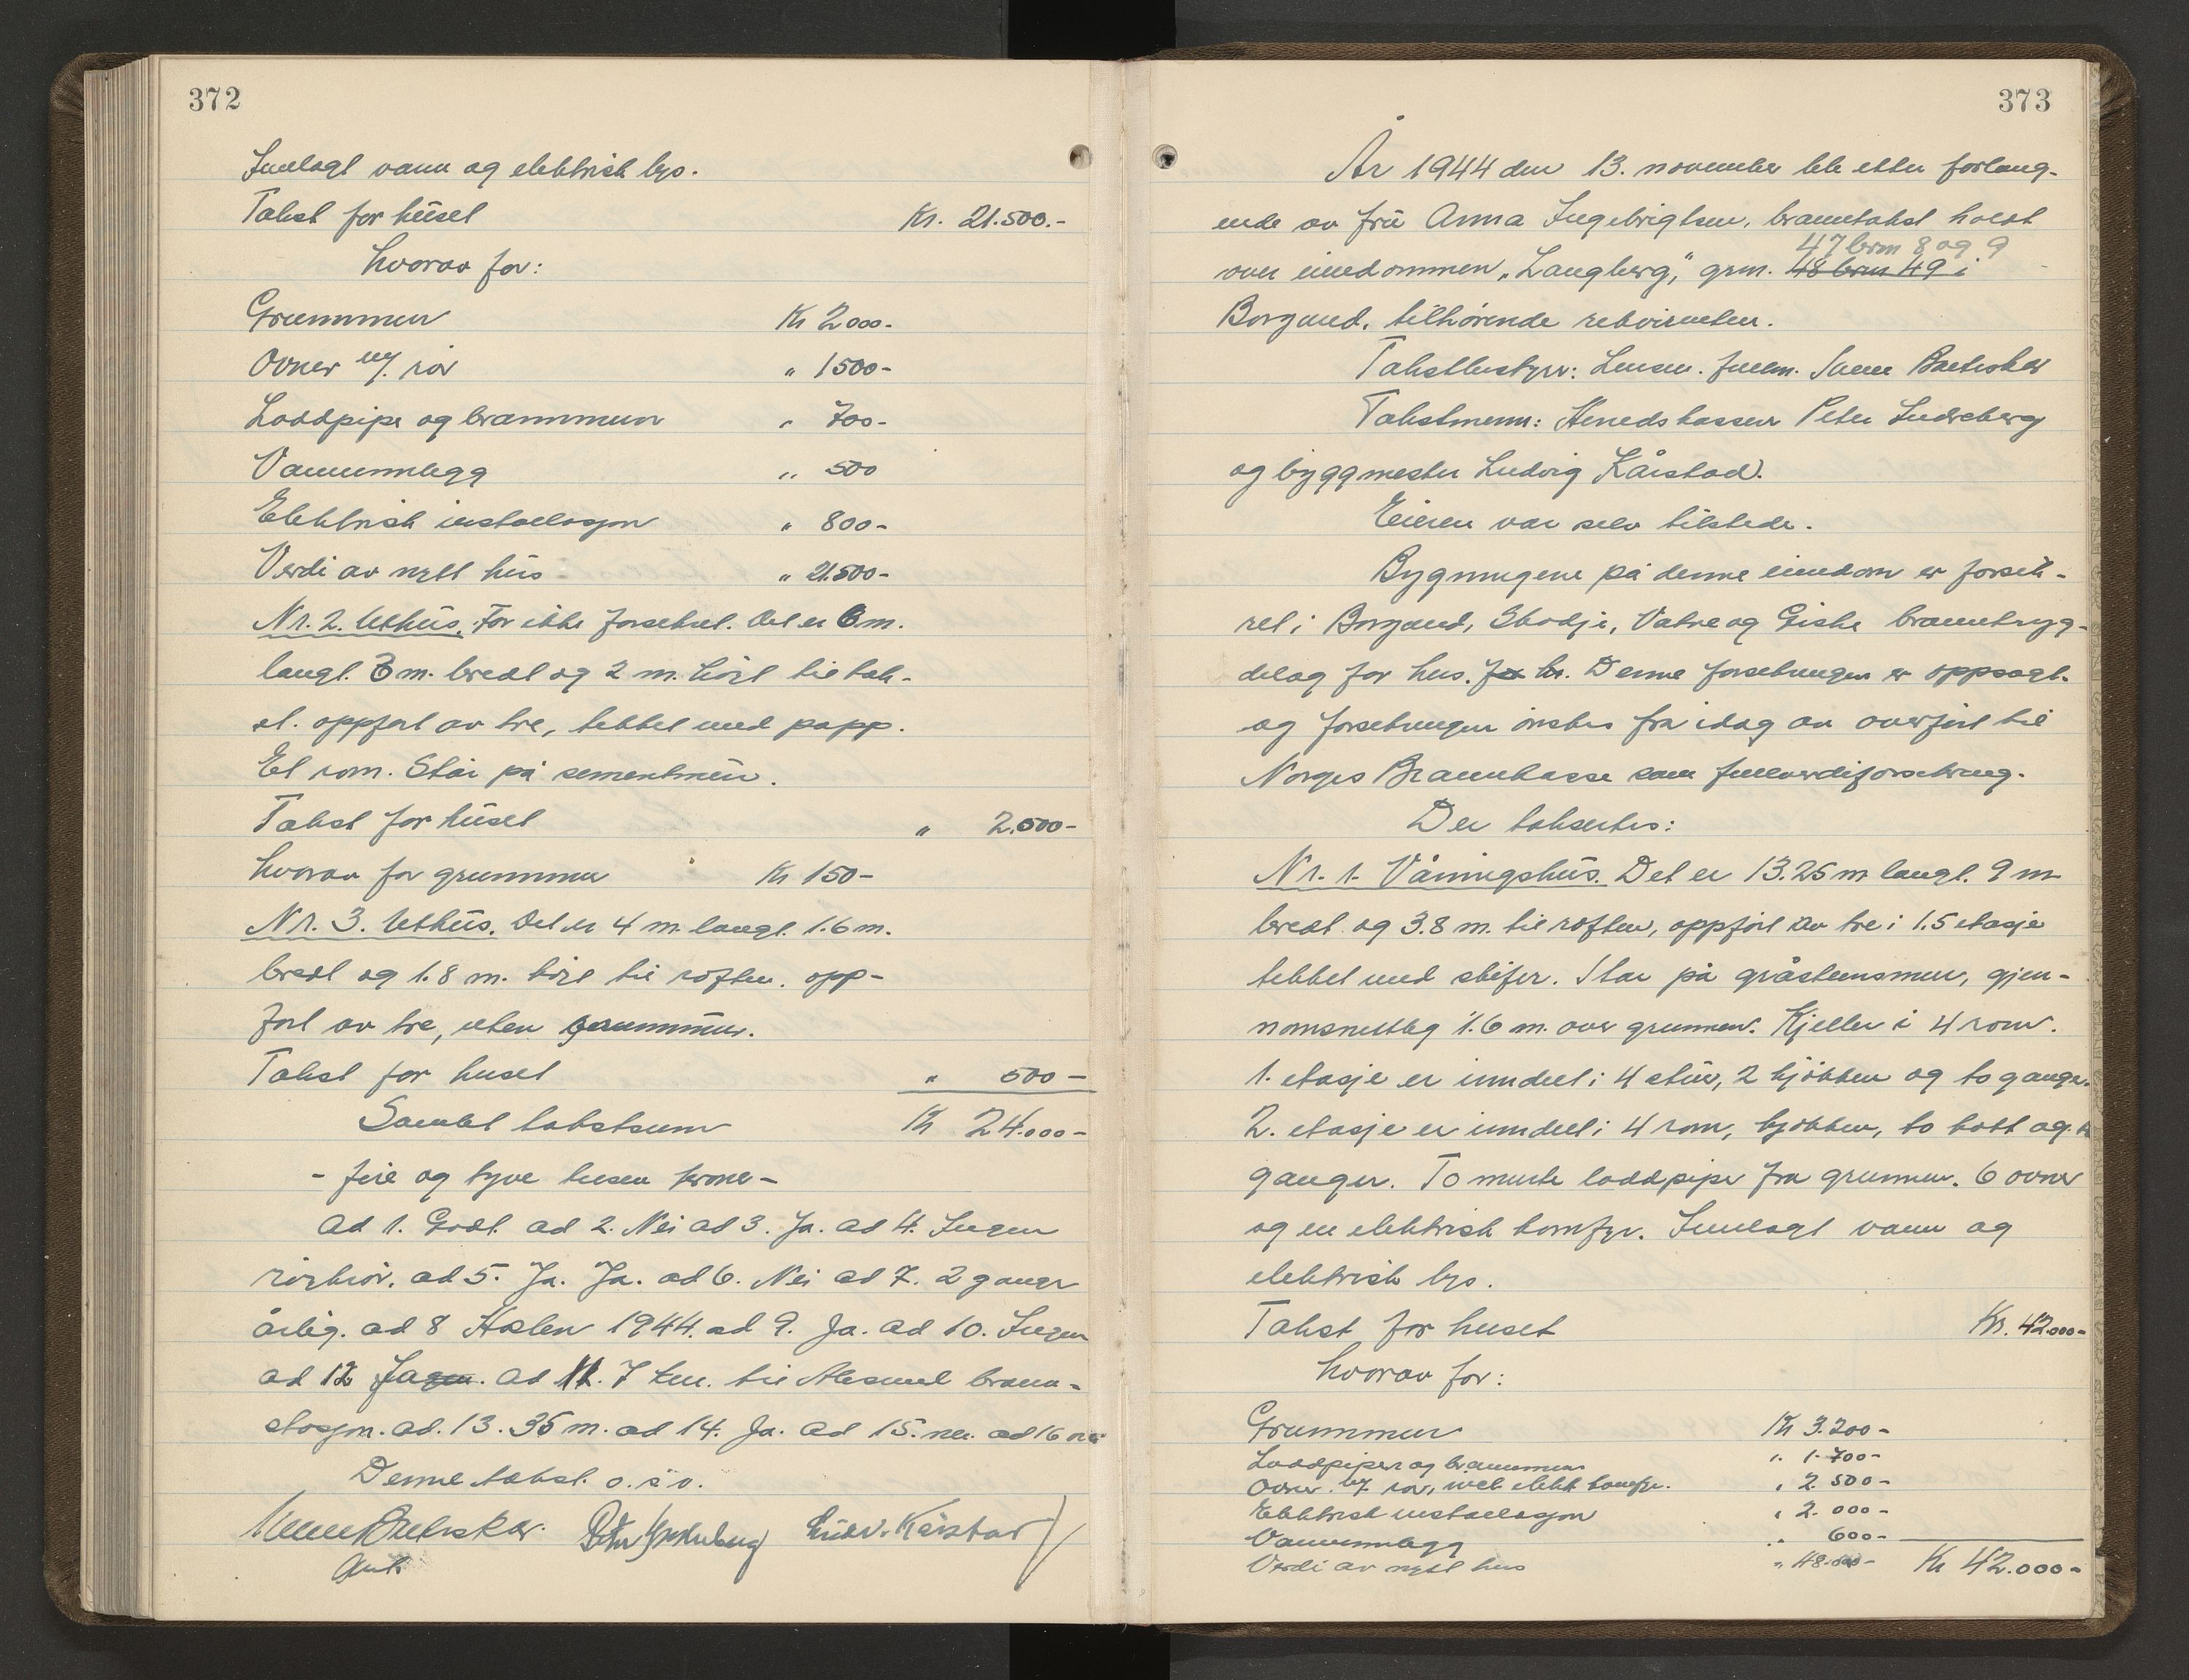 372
Innlagt vann og elektrisk lys.
Takst for huset Kr. 21.500.-
hvorav for:
Grunnmur Kr 2000-
Ovner m/ rør " 1500-
Loddpipe og brannmur " 700-
Vanninnlegg " 500
Elektrisk installasjon " 800-
Verdi av nytt hus " 21.500-
Nr. 2. Uthus. Før ikke forsikret. Det er 6 m.
langt. 3 m. bredt og 2 m. høgt til tak-
et. oppført av tre, tekket med papp.
Et rom. Står på sementmur.
Takst for huset " 2.000-
hvorav for grunnmur Kr 150-
Nr. 3. Uthus. Det er 4 m. langt. 1.6 m.
bredt og 1.8 m. høgt til røften. opp-
ført av tre, uten grunnmur.
Takst for huset " 500-
Samlet takstsum Kr 24.000-
- fire og tyve tusen kroner -
ad 1. Godt. ad 2. Nei ad 3. Ja. ad 4. Ingen
ad 5. Ja. Ja. ad 6. Nei ad 7. 2 ganger
årlig. ad 8 Høsten 1944. ad 9. Ja. ad 10. Ingen
ad 12 Ja. ad 11. 7 km. til Ålesund brann-
stasjon. ad. 13. 35 m. ad 14. Ja. ad 15. nei. ad 16 nei
Denne takst. o.s.v.
Ludv. Kårstad
373
År 1944 den 13. november ble etter forlang-
ende av fru Anna Ingebrigtsen, branntakst holdt
47 brn 8 og 9
over eiendommen "Langberg," grn. 48 brn 49 i
Borgund, tilhørende rekvirenten.
Takstbestyrer: Lensm. fullm.
Takstmenn: Herredskasserer Peter Indreberg
og byggmester Ludvig Kårstad.
Eieren var selv tilstede.
Bygningene på denne eiendom er forsik-
ret i Borgund, Skodje, Vatne og Giske branntryg-
delag for hus. for kr. Denne forsikringen er oppsagt.
og forsikringen ønskes fra idag av overført til
Norges Brannkasse som fullverdiforsikring.
Der takseres:
Nr. 1. Våningshus. Det er 13.25 m langt. 9 m
bredt og 3.8 m. til røften, oppført av tre i 1.5 etasje
tekket med skifer. Står på gråsteinsmur, gjen-
nomsnittlig 1.6 m. over grunnen. Kjeller i 4 rom.
1. etasje er inndelt i 4 stuer, 2 kjøkken og to ganger.
2. etasje er inndelt i 4 rom, kjøkken, to kott og to
ganger. To murte loddpiper fra grunnen. 6 ovner
og en elektrisk komfyr. Innlagt vann og
elektrisk lys.
Takst for huset Kr. 42.000-
hvorav for:
Grunnmur Kr 3.200-
Loddpiper og brannmur " 1.700-
Ovner m/ rør, inkl elekt komfyr. " 2.500-
Elektrisk installasjon " 2.000-
Vanninnlegg " 600-
Verdi av nytt hus " 48.000- Kr 42.000-